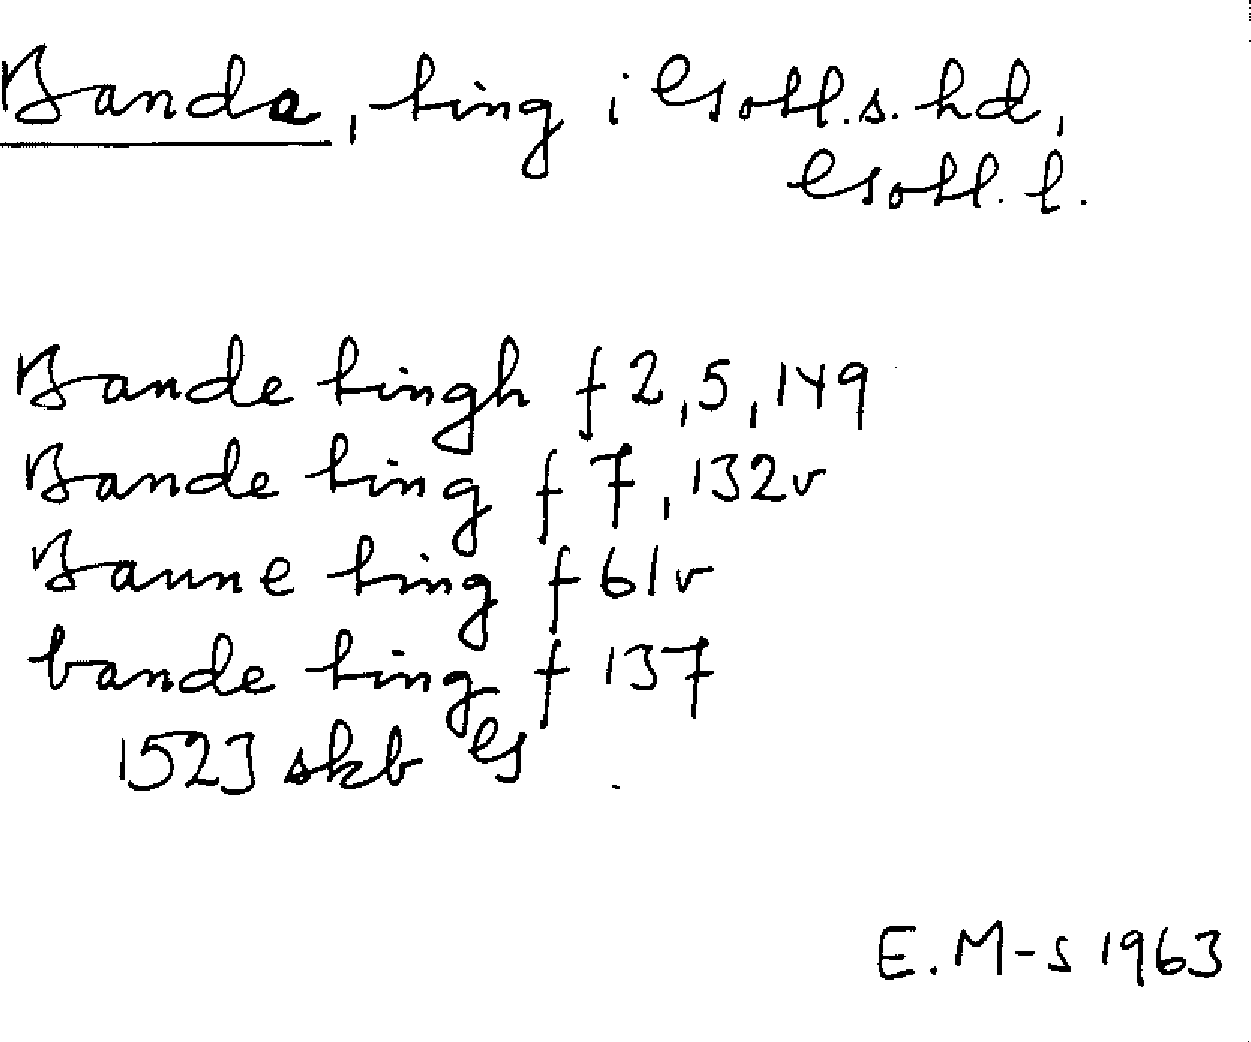 Banda, ting i Gotl.s.hd,
Gotl.l.
Bande tingh f 2, 5, 149
Bande ting f 7, 132v
Banne ting f 61v
bande ting f 137
1523 skb G
E.M-s 1963